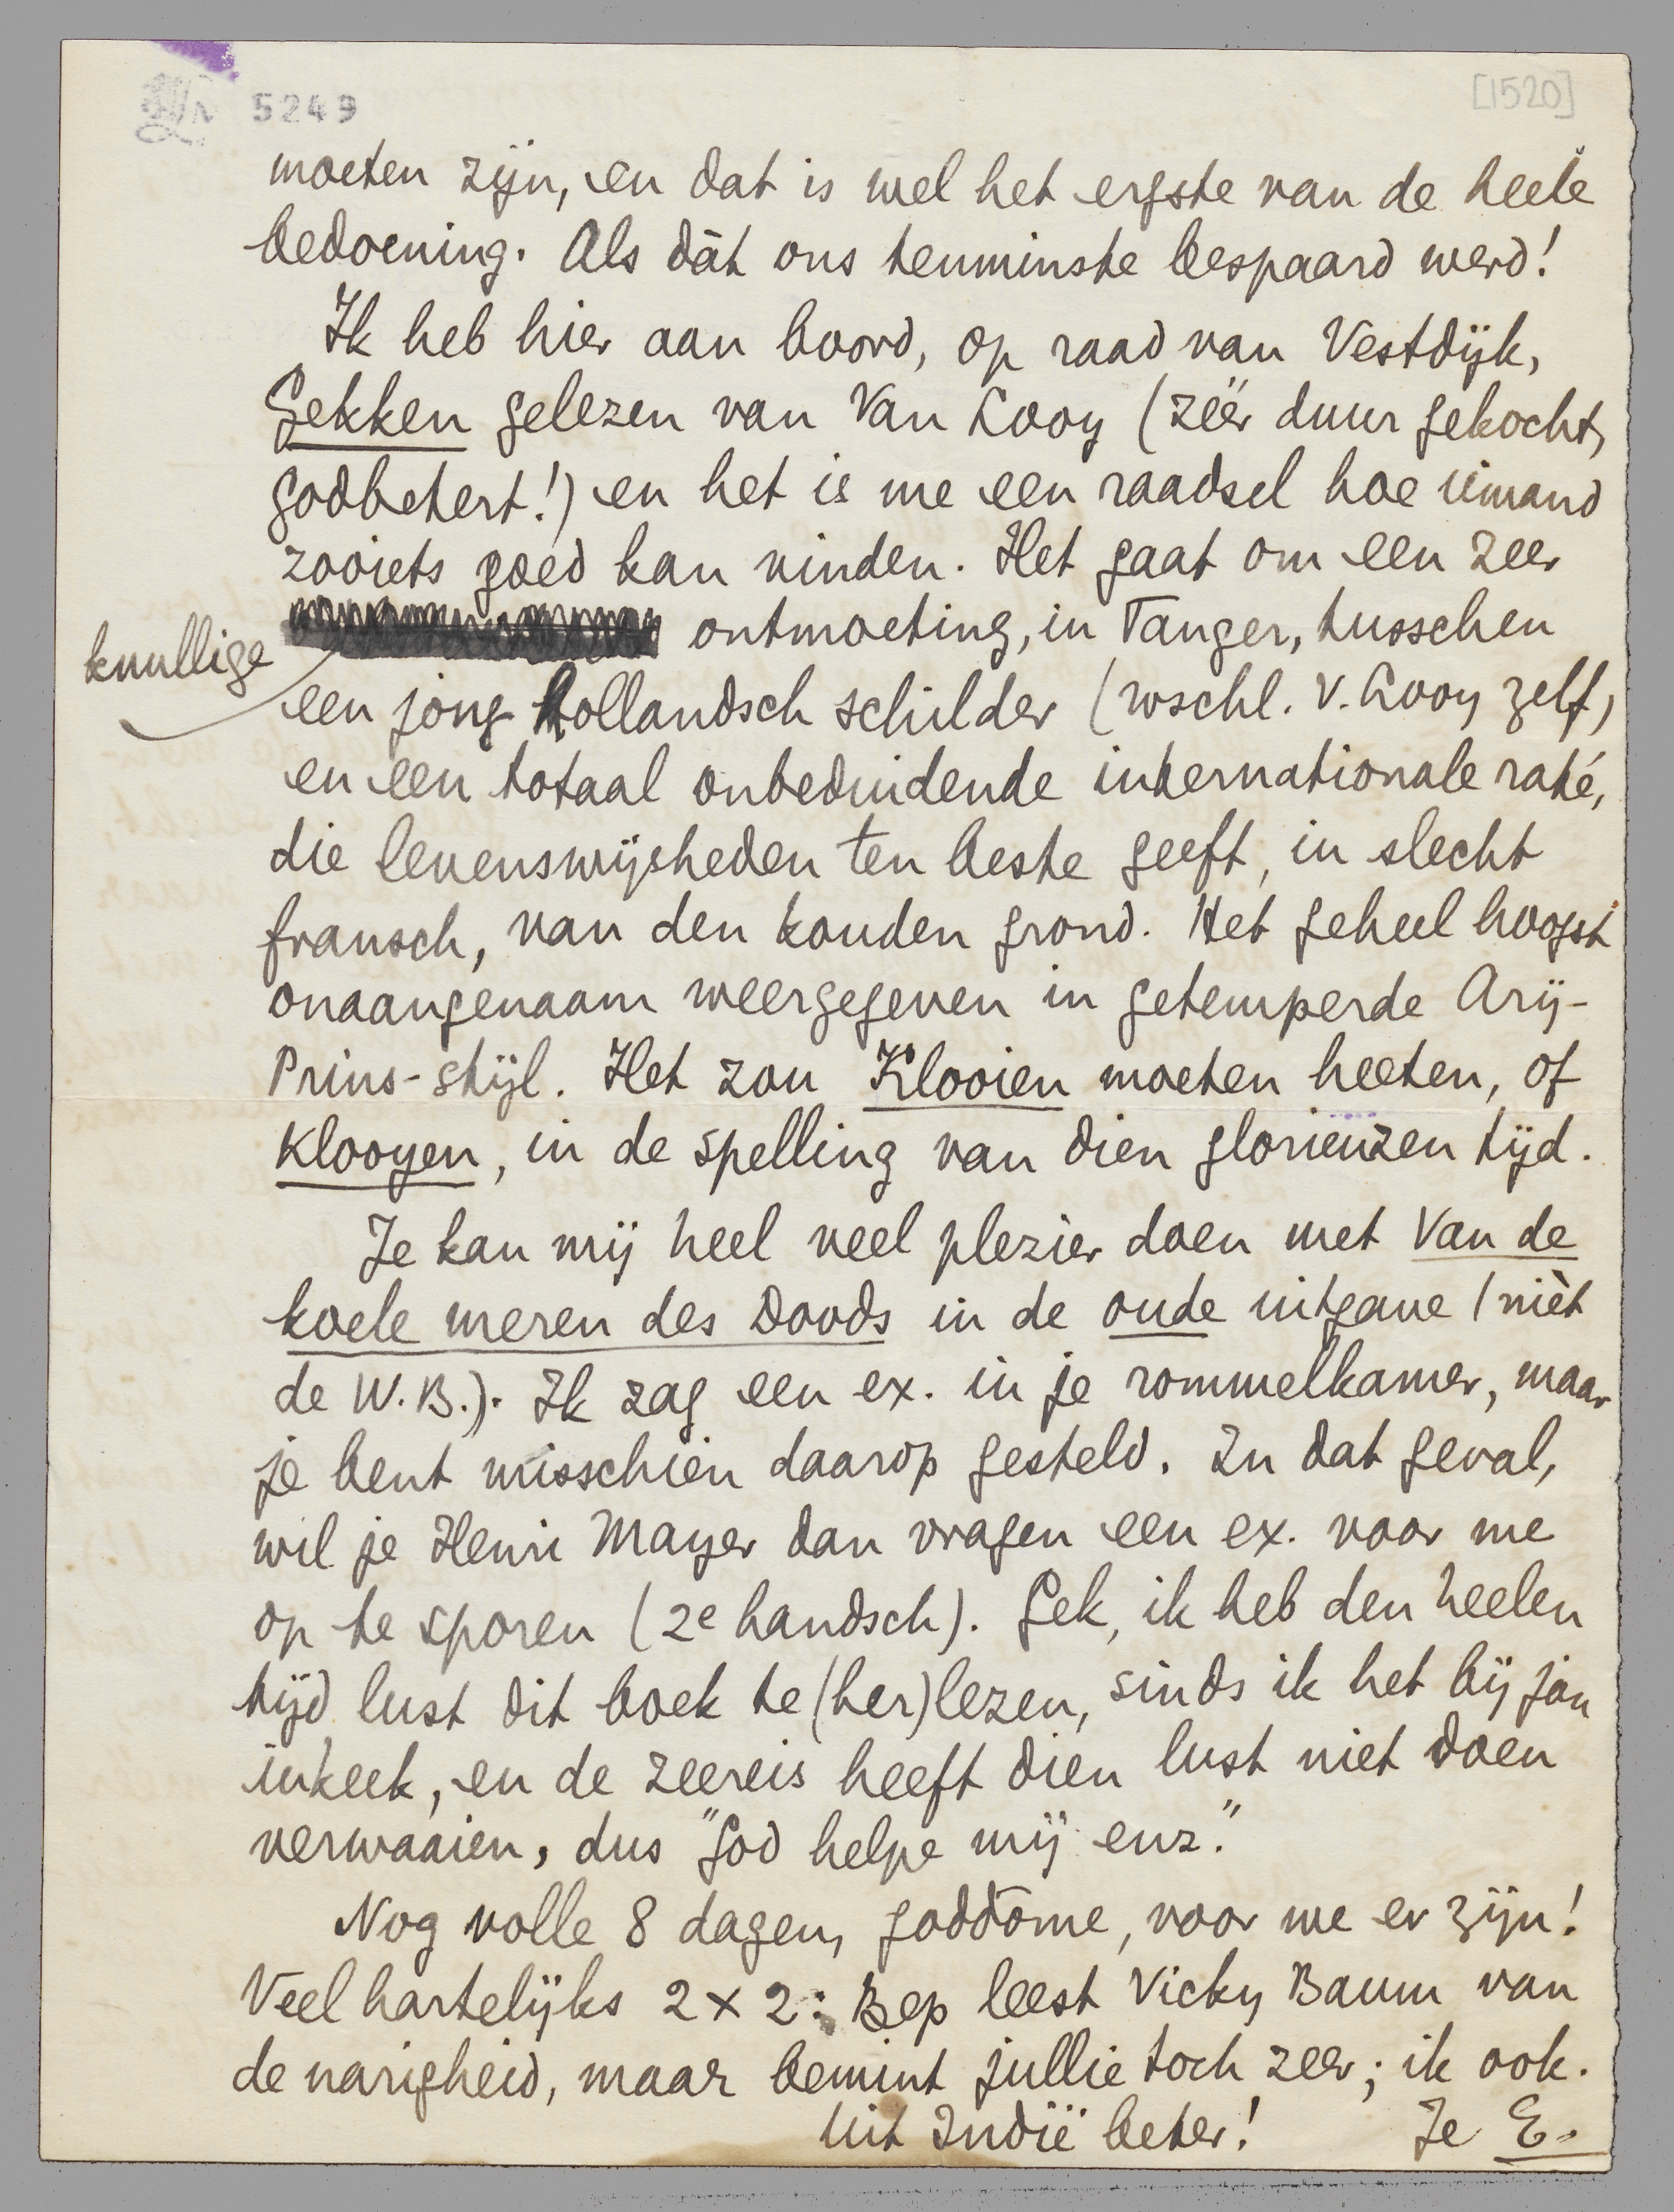 5249
[1520]
moeten zijn, en dat is wel het ergste van de heele
bedoening. Als dàt ons tenminste bespaard werd!
Ik heb hier aan boord, op raad van Vestdijk,
Gekken gelezen van Van Looy (zéér duur gekocht,
godbetert!) en het is me een raadsel hoe iemand
zooiets goed kan vinden. Het gaat om een zeer
knullige ontmoeting, in Tanger, tusschen
een jong hollandsch schilder (wschl. v. Looy zelf)
en een totaal onbeduidende internationale raté,
die levenswijsheden ten beste geeft, in slecht
fransch, van den kouden grond. Het geheel hoogst
onaangenaam weergegeven in getemperde Arij-
Prins-stijl. Het zou Klooien moeten heeten, of
Klooyen, in de spelling van dien glorieuzen tijd.
Je kan mij heel veel plezier doen met Van de
koele meren des Doods in de oude uitgave (nièt
de W.B.). Ik zag een ex. in je rommelkamer, maar
je bent misschien daarop gesteld. In dat geval,
wil je Henri Mayer dan vragen een ex. voor me
op te sporen (2e handsch). Gek, ik heb den heelen
tijd lust dit boek te (her)lezen, sinds ik het bij Jan
inkeek, en de zeereis heeft dien lust niet doen
verwaaien, dus "God helpe mij enz."
Nog volle 8 dagen, goddome, voor we er zijn!
Veel hartelijks 2 x 2; Bep leest Vicky Baum van
de narigheid, maar bemint jullie toch zeer; ik ook.
Uit Indië beter! Je E.